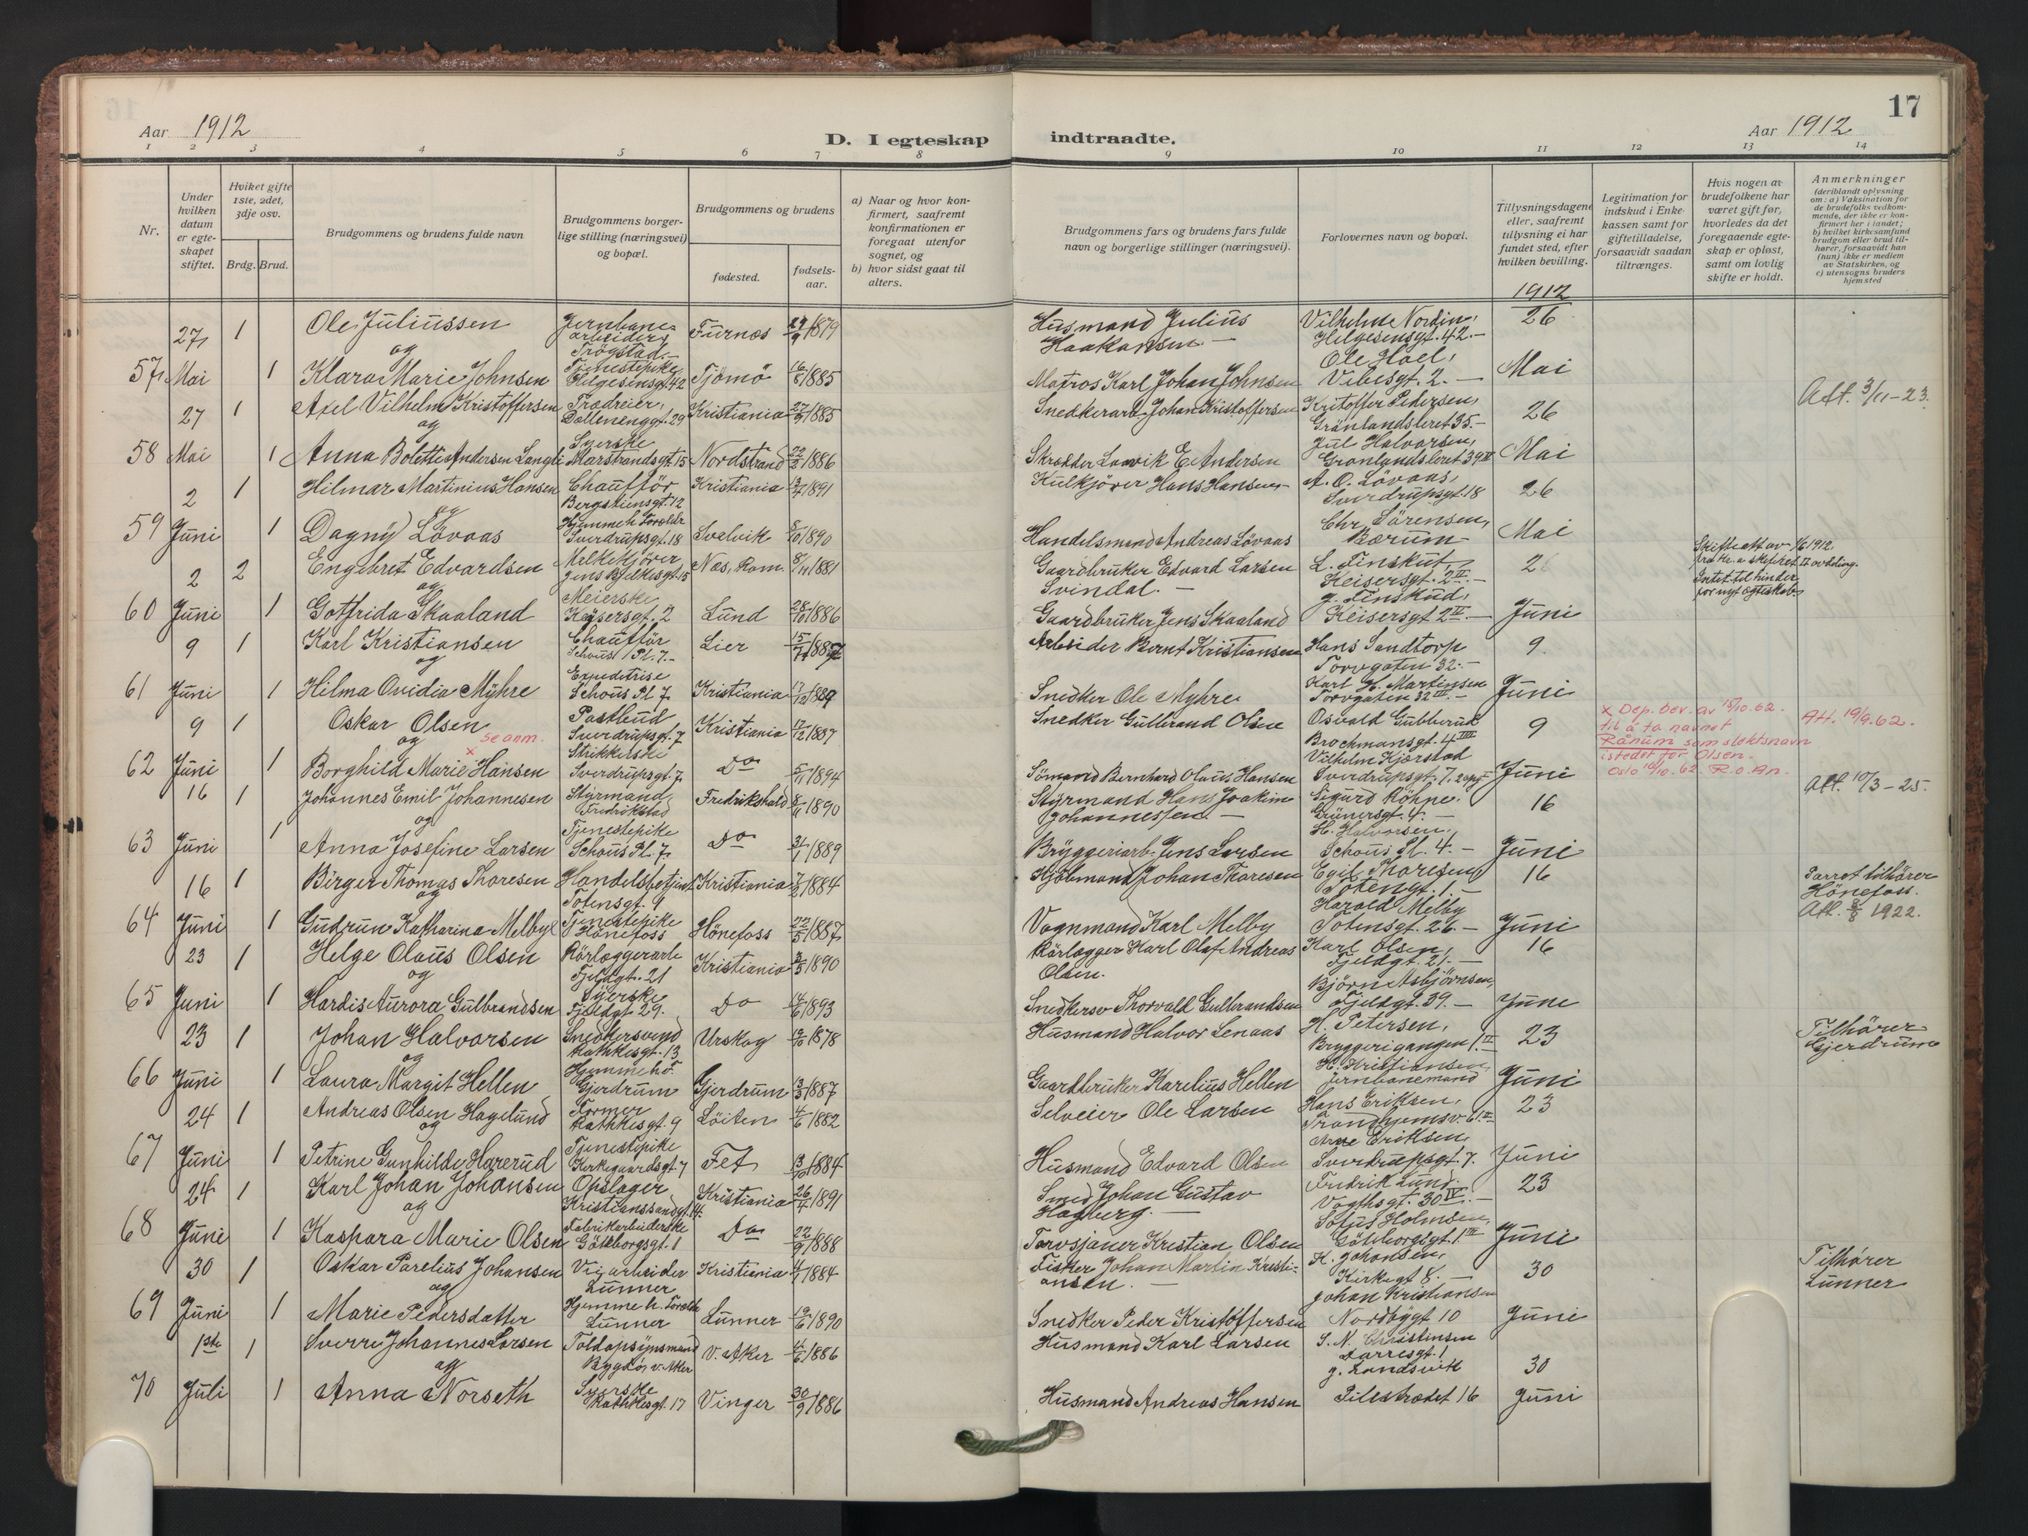 17
Aar 1912
D. I egteskap indtraadte.
Aar 1912
1 2 3 4 5 6 7 8 9 10 11 12 13 14
Nr.
Under hvilken datum er egteskapet stiftet.
Hviket gifte 1ste, 2det, 3dje osv.
Brdg. Brud.
Brudgommens og brudens fulde navn
Brudgommens borgerlige stilling (næringsvei) og bopæl.
Brudgommens og brudens
fødested.
fødselsaar.
a) Naar og hvor konfirmert, saafremt konfirmationen er foregaat utenfor sognet, og
b) hvor sidst gaat til alters.
Brudgommens fars og brudens fars fulde navn og borgerlige stillinger (næringsvei).
Forlovernes navn og bopæl.
Tillysningsdagene eller, saafremt tillysning ei har fundet sted, efter hvilken bevilling.
Legitimation for indskud i Enkekassen samt for giftetilladelse, forsaavidt saadan tiltrænges.
Hvis nogen av brudefolkene har været gift før, hvorledes da det foregaaende egteskap er opløst, samt om lovlig skifte er holdt.
Anmerkninger
(deriblandt oplysning om: a) Vaksination for de brudefolks vedkommende, der ikke er konfirmert her i landet; b) hvilket kirkesamfund brudgom eller brud tilhører, forsaavidt han (hun) ikke er medlem av Statskirken, og c) utensogns bruders hjemsted
1912
27 1 Ole Juliussen Jernbanearbeider, Trøgstad.- Furnes 27/9 1879 Husmand Julius Haakansen.- Vilhelm Nordin, Helgesensgt. 42.- 26
og
57 Mai 1 Klara Marie Johnsen Tjenestepike Helgesensgt 42 Tjömö 16/8 1885 Matros Karl Johan Johnsen Ole Hoel, Vibesgt. 2.- Mai
Att. 3/11-23.
27 1 Axel Vilhelm Kristoffersen Trædreier, Dælenenggt. 29 Kristiania 27/9 1885 Snedkerarb. Johan Kristoffersen Kristoffer Pedersen, Grönlandsleret 35.- 26
og
58 Mai 1 Anna Bolette Andersen Langli Syerske Marstrandsgt 15 Nordstrand 22/2 1886 Skrædder Lauvik E. Andersen Jul Halvorsen, Grønlandsleret 39 II Mai
2 1 Hilmar Martinius Hansen Chauffør Bergstiensgt. 12 Kristiania 3/4 1891 Kulkjører Hans Hansen.- A. O. Lövaas, Sverdrupsgt. 18 26
og
59 Juni 1 Dagny Lövaas Hjemme h. Forældr Sverdrupsgt. 18 Svelvik 5/10 1890 Handelsmand Andreas Lövaas Chr. Sörensen, Bærum Mai
2 2 Engebret Edvardsen Melkekjører Næs, Rom. 8/11 1881 Gaardbruker Edvard Larsen Svindal.- L. Finskut, Keisersgt. 2 II.- 26
og
Skifteatt av 1/6 1912
Intet til hinder
for nyt egteskab
60 Juni 1 Gotfrida Skaaland Meierske Keisersgt. 2 Lund 28/10 1886 Gaardbruker Jens Skaaland g. Finskud, Keisersgt 2 II.- Juni
9 1 Karl Kristiansen Chauffør Schous Pl. 7.- Lier 15/7 1887 Arbeider Bernt Kristiansen Hans Sandtorp Torvgaten 32.- 9.
og
61 Juni 1 Hilma Ovidia Myhre Expeditrise Schous Pl. 7 Kristiania 17/12 1889 Snedker Ole Myhre Karl H. Martinsen Torvgaten 32 III.- Juni
9 1 Oskar Olsen Postbud Sverdrupsgt. 7 Kristiania 17/12 1887 Snedker Gulbrand Olsen Osvald Gubberud Brochmansgt. 4 III 9
og
x se anm.
x Dep. bev. av 15/10.62.
til å ta navnet
Rånum som slektsnavn
istedet for Olsen.
Oslo 16/10. 62. R.o.An.
Att. 19/9.62.
62 Juni 1 Borghild Marie Hansen Strikkerske Sverdrupsgt. 7 Do 5/11 1894 Sömand Bernhard Olaus Hansen Vilhelm Kjørstad Sverdrupsgt. 7. Juni
16 1 Johannes Emil Johannesen Styrmand, Fredrikstad Fredrikshald 8/4 1890 Styrmand Hans Joakim Johannessen.- Sigurd Röhne, Grünersgt. 4.- 16
og
Att. 10/3-25.
63 Juni 1 Anna Josefine Larsen Tjenestepike Schous Pl. 7. Do 31/1 1889 Bryggeriarb. Jens Larsen H. Halvorsen, Schous Pl. 4.- Juni
16 1 Birger Thomas Thoresen Handelsbetjent Totensgt. 9 Kristiania 7/2 1884 Hjölmand Johan Thoresen Egil Thoresen Totengt. 1.- 16
og
Parret tilhører
Hönefoss.
Att. 8/8 1922.
64 Juni 1 Gudrun Katharina Melbye Tjenestepike Hönefoss Hönefoss 22/5 1887 Vognmand Karl Melby Harald Melby Totensgt. 26.- Juni
23 1 Helge Olaus Olsen Rörlæggerarb Fjeldgt. 21 Kristiania 2/3 1890 Rörlægger Karl Olaf Andreas Olsen. Karl Olsen, Fjeldgt. 21.- 16
og
65 Juni 1 Hardis Aurora Gulbrandsen Syerske Fjeldgt 29. Do 14/6 1893 Snedkersv Thorvald Gulbrandsen Björn Asbjørnsen, Fjeldgt. 39.- Juni
23 1 Johan Halvorsen Snedkersvend Rathkesgt. 13 Urskog 19/10 1878 Husmand Halvor Lenaas H. Petersen, Bryggerigangen 1 II 23
og
Tilhører
Gjerdrum
66 Juni 1 Laura Margit Hellen Hjemme hf. Gjerdrum Gjerdrum 3/3 1887 Gaardbruker Karelius Hellen H. Kristiansen, Jernbanemand Juni
24 1 Andreas Olsen Hagelund Former Rathkesgt. 9 Löiten 4/6 1882 Selveier Ole Larsen Hans Eriksen, Trondhjemsv. 6 II 23
og
67 Juni 1 Petrine Gunhilde Harerud Tjenestepike Kirkegaardsgt. 7 Fet 3/10 1884 Husmand Edvard Olsen Arne Eriksen, Sverdrupsgt. 7. Juni
24 1 Karl Johan Johansen Opslager Kristianssandgt. 14. Kristiania 26/4 1891 Smed Johan Gustav Hagberg.- Fredrik Lund, Vogtsgt. 30 IV.- 23
og
68 Juni 1 Kaspara Marie Olsen Fabrikarbeiderske Göteborgsgt. 1 Do 22/9 1888 Torvsjauer Kristian Olsen Sofus Holmsen, Göteborgsgt. 1 III Juni
30 1 Oskar Parelius Johansen Veiarbeider Lunner Kristiania 4/1 1884 Fisker Johan Martin Kristiansen.- K. Johansen, Kirkegt 8.- 30
og
Tilhører
Lunner
69 Juni 1 Marie Pedersdatter Hjemme h. Foreldr Lunner Lunner 19/6 1890 Snedker Peder Kristoffersen Johan Kristiansen Nordbygt 10 Juni
1ste 1 Sverre Johannes Larsen Toldopsynsmand Bygdø v. Aker V. Aker 4/6 1886 Husmand Karl Larsen S. N. Christensen Darresgt. 1 30
og
70 Juli 1 Anna Norseth Syerske Rathkesgt. 17 Vinger 30/9 1886 Husmand Andreas Hansen g. Landsvik Pilestrædet 16 Juni